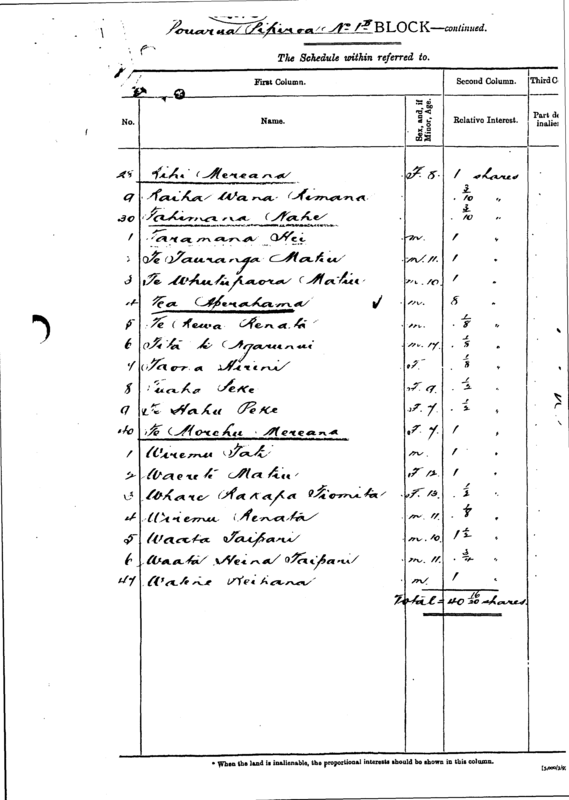 Pouarua Pipiroa No 1B BLOCK—continued.
The Schedule within referred to.
First Column. Second Column. Third C
No. Name. Sex, and, if Minor, Age. Relative Interest. Part de inalie
28 Rihi Mereana F. 8. 1 shares
9 Raiha Wana Rimana 3/10 "
30 Tahimana Nahe 3/10 "
1 Taramana Hei m. 1 "
2 Te Tauranga Matiu m. 11. 1 "
3 Te Whutupaora Matiu m. 10. 1 "
4 Tea Aperahama ✓ m. 8 "
5 Te Rewa Renata m. 1/8 "
6 Tita te Ngarunui m. 17. 1/8 "
7 Taora Hirini F. 1/8 "
8 Tuaho Peke F. 9. 1/2 "
9 Te Hahu Peke F. 7. 1/2 "
40 Te Morehu Mereana F. 7. 1 "
1 Wiremu Tati m. 1 "
2 Waerete Matiu F 12. 1 "
3 Whare Rakapa Tiomita F. 13. 1/2 "
4 Wiremu Renata m. 11. 1/8 "
5 Waata Taipari m. 10. 1 1/2 "
6 Waata Heina Taipari m. 11. 3/4 "
47 Keihana m. 1 "
Total = 40 16/20 shares.
* When the land is inalienable, the proportional interests should be shown in this column.